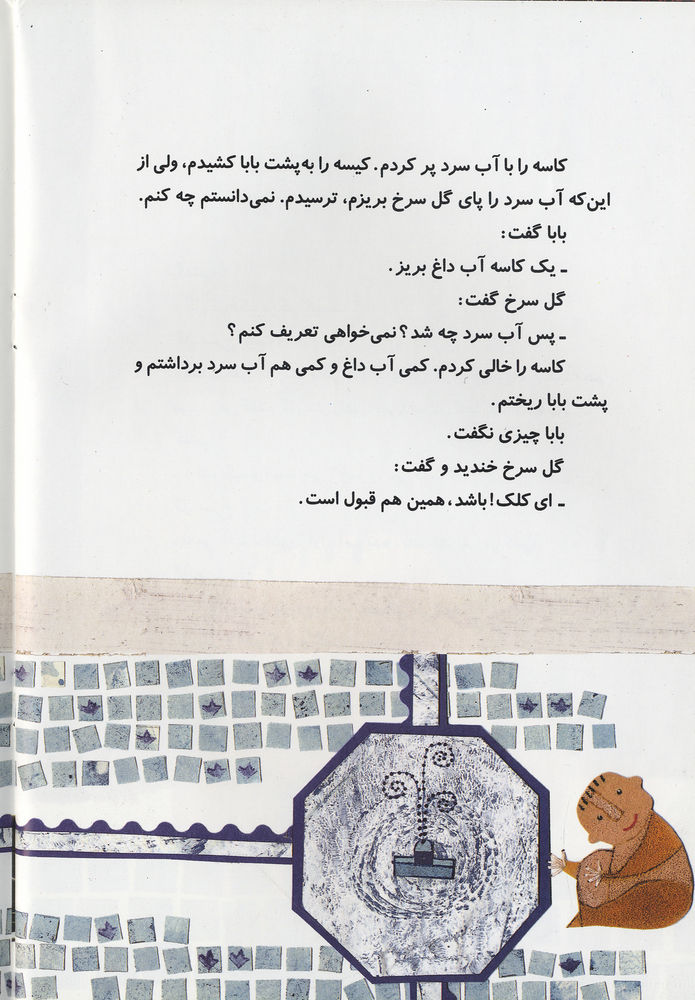 کاسه را با آب سرد پر کردم. کیسه را به‌پشت بابا کشیدم، ولی از
این‌که آب سرد را پای گل سرخ بریزم، ترسیدم. نمی‌دانستم چه کنم.
بابا گفت:
ـ یک کاسه آب داغ بریز.
گل سرخ گفت:
ـ پس آب سرد چه شد؟ نمی‌خواهی تعریف کنم؟
کاسه را خالی کردم. کمی آب داغ و کمی هم آب سرد برداشتم و
پشت بابا ریختم.
بابا چیزی نگفت.
گل سرخ خندید و گفت:
ـ ای کلک! باشد، همین هم قبول است.